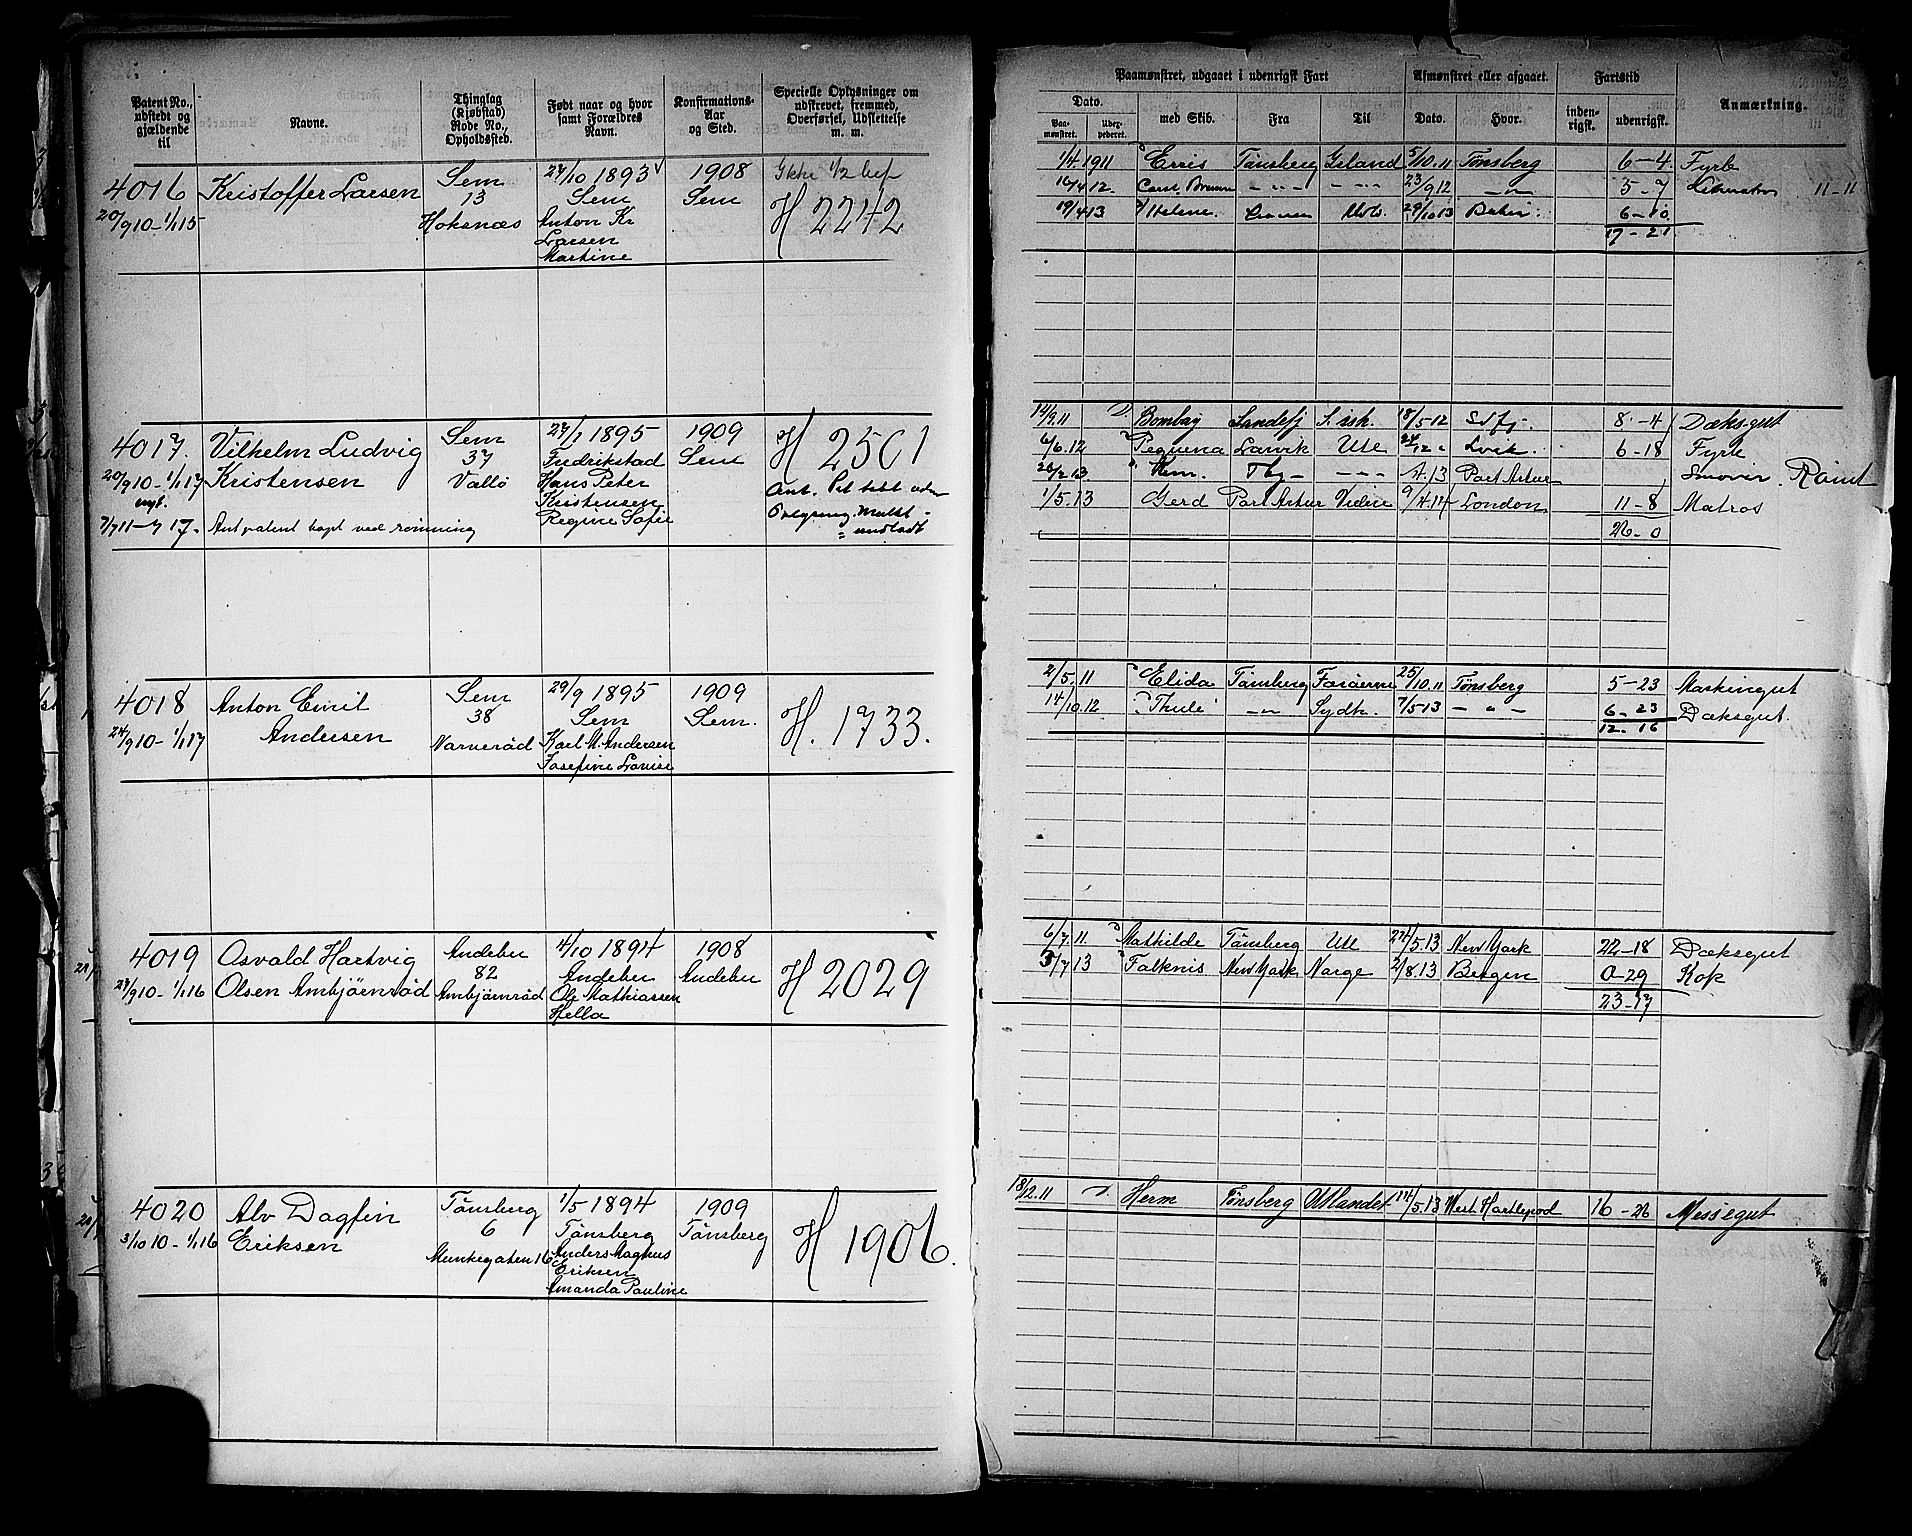 Patent No., udstedt og gjældende til
Navne.
Thinglag (Kjøbstad) Rode No., Opholdssted.
Født naar og hvor samt Forældres Navn.
Konfirmations-Aar og Sted.
Specielle Oplysninger om udskrevet, fremmed, Overførsel, Udslettelse m. m.
4016
20/9 10 – 1/1 15
Kristoffer Larsen
Sem
13
Hoksnæs
27/10 1893
Sem
Anton Kr
Larsen
Martine
1908
Sem
1/2 bef
H 2242
4017.
20/9 10 – 1/1 17
Vilhelm Ludvig
Kristensen
Sem
37
Vallö
27/1 1895
Fredrikstad
Hans Peter
Kristensen
Regine Sofie
1909
Sem
H 2501
Antpatent tapt ved römning
4018
24/9 10 – 1/1 17
Anton Emil
Andersen
Sem
38
Narverød
29/9 1895
Sem
Karl M. Andersen
Josefine Lovise
1909
Sem.
H. 1733.
4019
27/9 10 – 1/1 16
Osvald Hartvig
Olsen Ambjörnröd
Andebu
82
Ambjörnröd
4/10 1894
Andebu
Ole Mathiassen
Hella
1908
Andebu
H 2029
4020
3/10 10 – 1/1 16
Alv Dagfin
Eriksen
Tönsberg
6
Munkegaten 16
1/5 1894
Tönsberg
Anders Magnus
Eriksen
Amanda Pauline
1909
Tönsberg
H 1906.
Paamønstret, udgaaet i udenrigsk Fart
Afmønstret eller afgaaet.
Fartstid
Anmærkning.
Dato.
Paa-mønstret.
med Skib.
Fra
Til
Dato.
Hvor.
inden-rigsk.
udenrigsk.
1/4 1911 Erris Tönsberg Island 5/10 11 Tönsberg 6–4 Fyrb
16/4 12 – " – – " – 23/9 12 – " – 5–7 11–11
19/4 13 Helene 29/10 13 6–10
17–21
14/9 11 D. Bombay Sandefj S. isk. 18/5 12 Sdfj. 8–4 Dæksgut
6/6 12 Pequena Larvik Ute Lvik. 6–18 Fyrb
Port Artur
1/5 13 Gerd Port Artur Videre 9/4 14 London 11–8 Matros
26–0
2/5 11 Elida Tönsberg Færöerne 25/10 11 Tönsberg 5–23
14/10 12 Thule – " – Sydh. 7/5 13 – " – 6–23 Dæksgut.
12–16
6/7 11 Mathilde Tönsberg Ute 24/5 13 New York 22–18 Dæksgut
3/7 13 Falknis New York Norge 2/8 13 Bergen 0–29 Kok
23–17
18/12 11 D. Herm Tönsberg Utlandet 14/5 13 West Hartlepool 16–26 Messegut